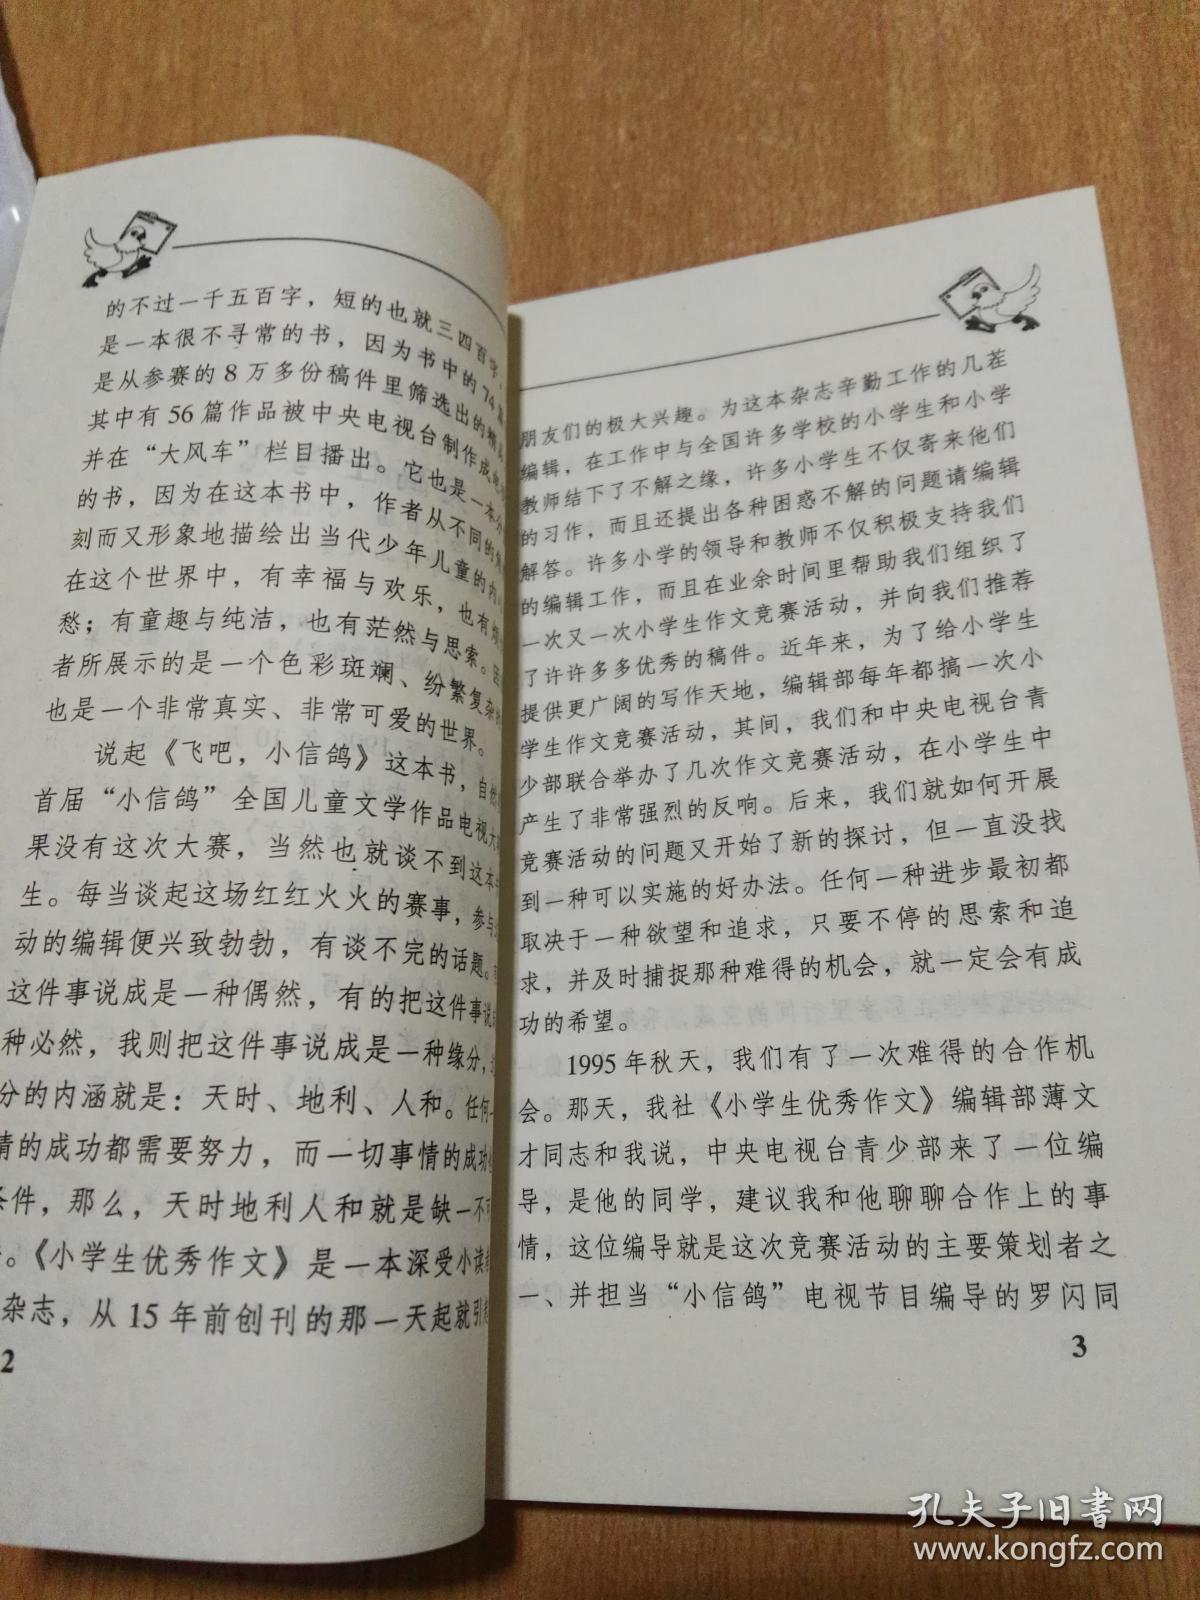 的不过一千五百字，短的也就三四百字，
是一本很不寻常的书，因为书中的74篇
是从参赛的8万多份稿件里筛选出的精
其中有56篇作品被中央电视台制作成
并在“大风车”栏目播出。它也是一本
的书，因为在这本书中，作者从不同的角
刻而又形象地描绘出当代少年儿童的内
在这个世界中，有幸福与欢乐，也有烦
愁；有童趣与纯洁，也有茫然与思索。因
者所展示的是一个色彩斑斓、纷繁复杂
也是一个非常真实、非常可爱的世界。
说起《飞吧，小信鸽》这本书，自然
首届“小信鸽”全国儿童文学作品电视大
果没有这次大赛，当然也就谈不到这本
生。每当谈起这场红红火火的赛事，参与
动的编辑便兴致勃勃，有谈不完的话题。
这件事说成是一种偶然，有的把这件事说
种必然，我则把这件事说成是一种缘分，
分的内涵就是：天时、地利、人和。任何
情的成功都需要努力，而一切事情的成功
条件，那么，天时地利人和就是缺一不可
。《小学生优秀作文》是一本深受小读
杂志，从15年前创刊的那一天起就引
2
朋友们的极大兴趣。为这本杂志辛勤工作的几茬
编辑，在工作中与全国许多学校的小学生和小学
教师结下了不解之缘，许多小学生不仅寄来他们
的习作，而且还提出各种困惑不解的问题请编辑
解答。许多小学的领导和教师不仅积极支持我们
的编辑工作，而且在业余时间里帮助我们组织了
一次又一次小学生作文竞赛活动，并向我们推荐
了许许多多优秀的稿件。近年来，为了给小学生
提供更广阔的写作天地，编辑部每年都搞一次小
学生作文竞赛活动，其间，我们和中央电视台青
少部联合举办了几次作文竞赛活动，在小学生中
产生了非常强烈的反响。后来，我们就如何开展
竞赛活动的问题又开始了新的探讨，但一直没找
到一种可以实施的好办法。任何一种进步最初都
取决于一种欲望和追求，只要不停的思索和追
求，并及时捕捉那种难得的机会，就一定会有成
功的希望。
1995年秋天，我们有了一次难得的合作机
会。那天，我社《小学生优秀作文》编辑部薄文
才同志和我说，中央电视台青少部来了一位编
导，是他的同学，建议我和他聊聊合作上的事
情，这位编导就是这次竞赛活动的主要策划者之
一、并担当“小信鸽”电视节目编导的罗闪同
3
孔夫子旧书网
www.kongfz.com